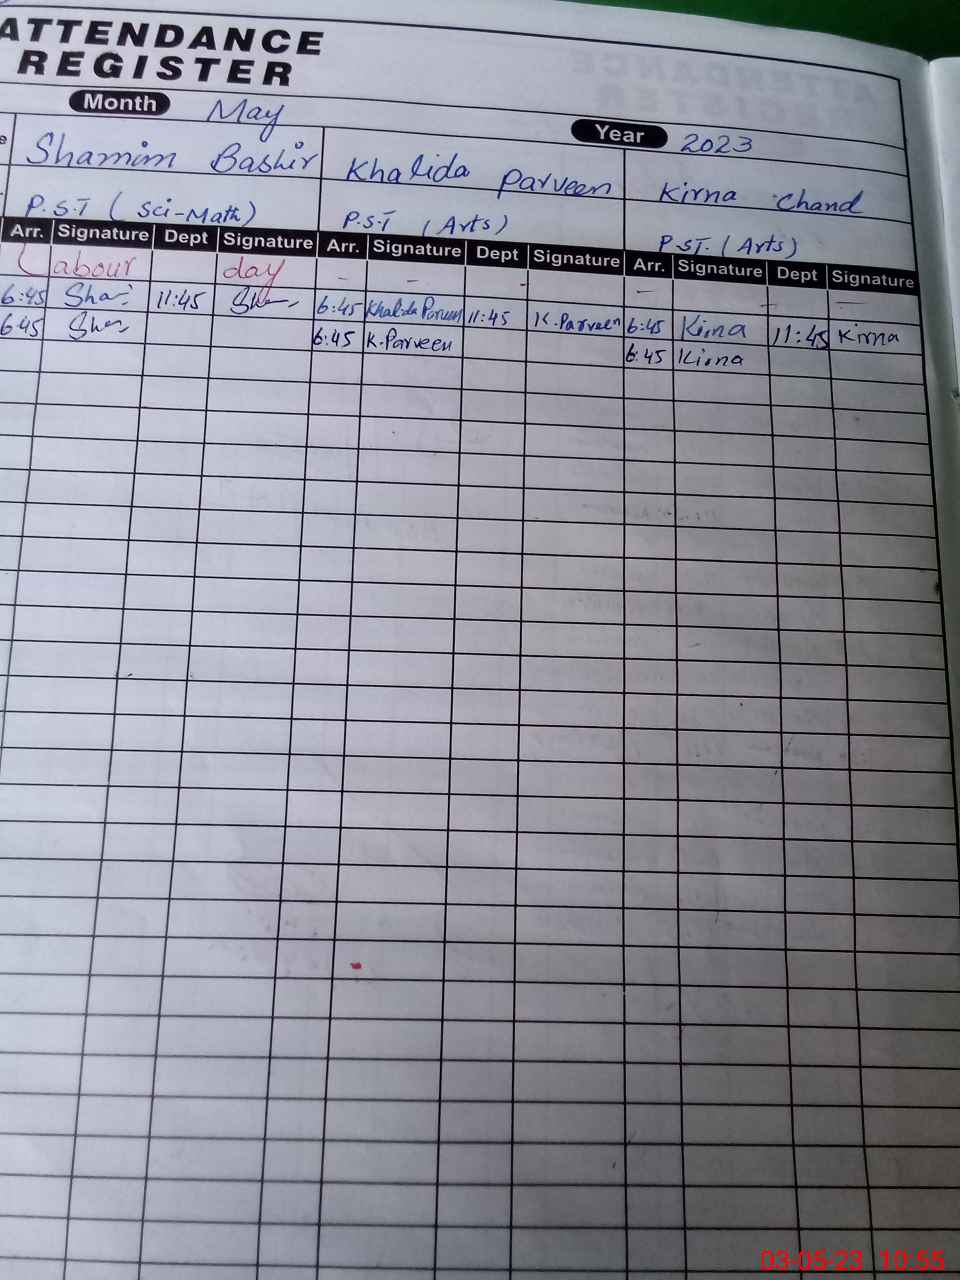 ATTENDANCE
REGISTER
Month May
Year 2023
Shamim Bashir Khalida Parveen Kirna Chand
P.S.T (Sci-Math) P.S.T (Arts) P.ST. (Arts)
Arr. Signature Dept Signature Arr. Signature Dept Signature Arr. Signature Dept Signature
Labour day - - - - - -
6:45 Sha 11:45 Sha 6:45 Khalida Parveen 11:45 K.Parveen 6:45 Kirna 11:45 Kirna
645 Sha 6:45 K.Parveen 6:45 Kirna
03-05-23 10:55